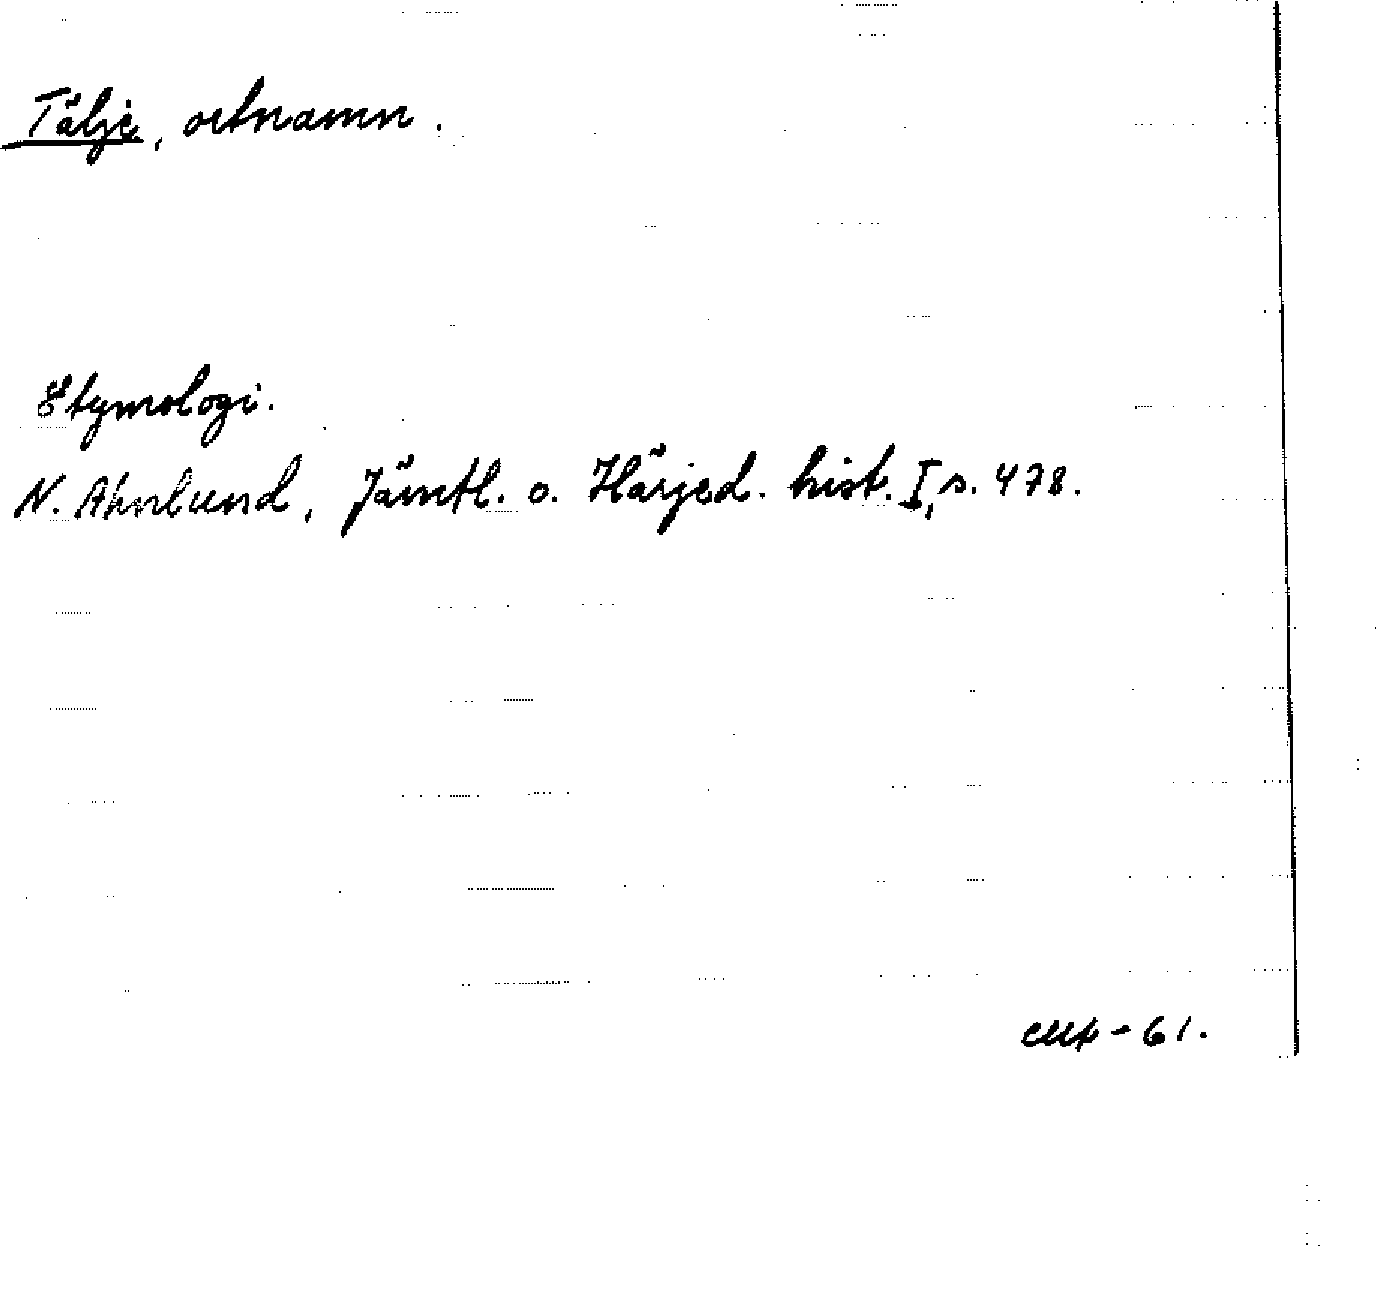 Tälje, ortnamn.
Etymologi.
N. Ahnlund, Jämtl. o. Härjed. hist. I, s. 478.
-61.